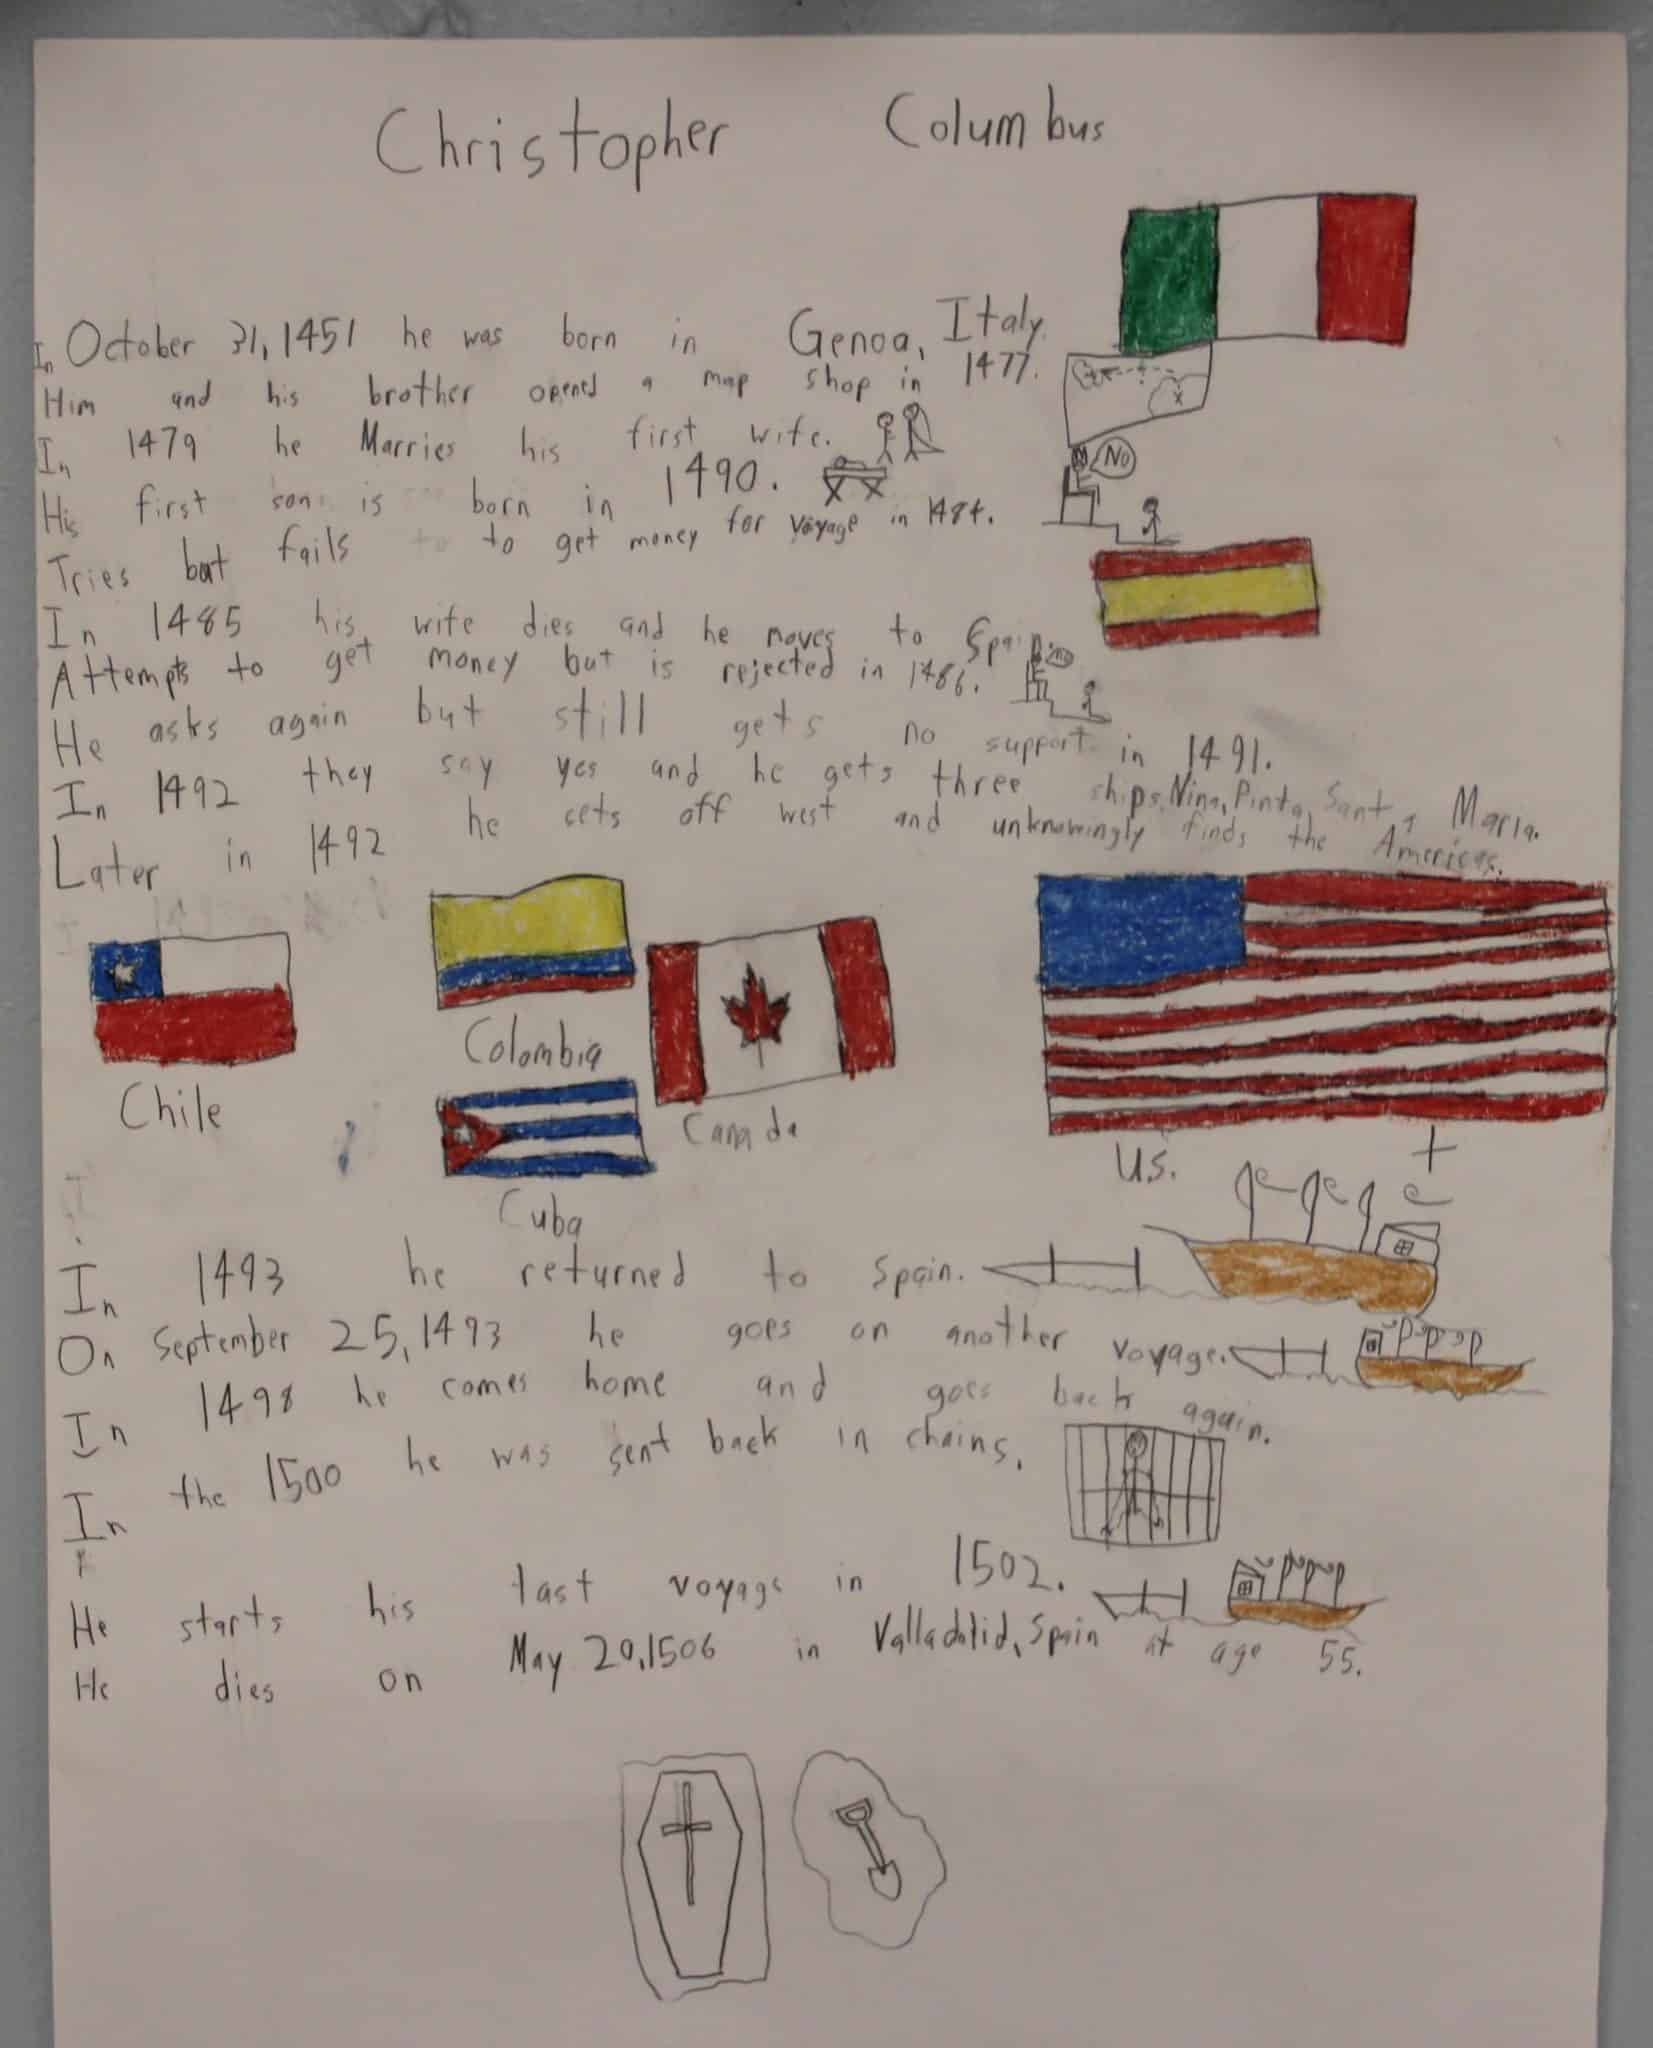 Christopher Columbus
In October 31, 1451 he was born in Genoa, Italy.
Him and his brother opened a map shop in 1477.
In 1479 he Marries his first wife.
His first son is born in 1490.
NO
Tries but fails to to get money for voyage in 1484.
In 1485 his wife dies and he moves to Spain.
Attempts to get money but is rejected in 1486.
He asks again but still gets no support in 1491.
In 1492 they say yes and he gets three ships, Nina, Pinta, Santa Maria.
Later in 1492 he sets off west and unknowingly finds the Americas.
Chile
Colombia
Canada
Cuba
U.S.
In 1493 he returned to Spain.
On September 25, 1493 he goes on another voyage.
In 1498 he comes home and goes back again.
In the 1500 he was sent back in chains.
He starts his last voyage in 1502.
He dies on May 20, 1506 in Valladolid, Spain at age 55.